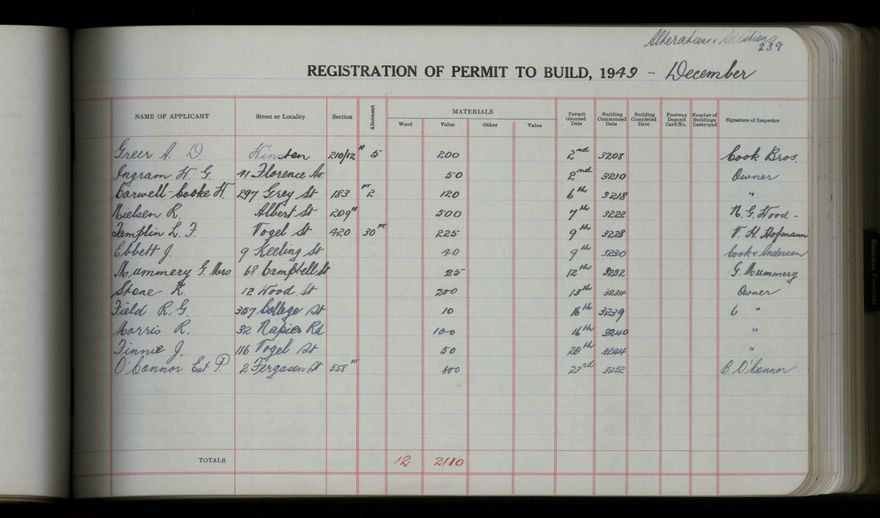 Alterations & Additions
239
REGISTRATION OF PERMIT TO BUILD, 1949 - December
NAME OF APPLICANT Street or Locality Section Allotment MATERIALS Permit Granted Date Building Commenced Date Building Completed Date Footway Deposit Card No. Number of Buildings Destroyed Signature of Inspector
Wood Value Other Value
Greer A. D. Winston 210/12 " 5 200 2nd 3208 Cook Bros.
Ingram H. G. 41 Florence Av. 50 2nd 3210 Owner
Carwell-Cooke H. 297 Grey St 183 pt 2 120 6th 3218 "
Nielsen R. Albert St 209 " 500 7th 3222 N. G. Wood -
Templin L. F. Vogel St 420 30 pt 225 9th 3228 V. H. Hofmann
Ebbett J. 9 Keeling St 40 9th 3230 Cook & Anderson
Mummery G. Mrs 68 Campbell St 25 12th 3232 G. Mummery
Stone K. 12 Wood St 200 13th 3234 Owner
Field R. G. 357 College St 10 16th 3239 "
Morris R. 32 Napier Rd 100 16th 3240 "
Finnie J. 116 Vogel St 50 20th 3244 "
O'Connor Est P. 2 Ferguson St 558 pt 600 23rd 3252 B. O'Connor
TOTALS 12 2110